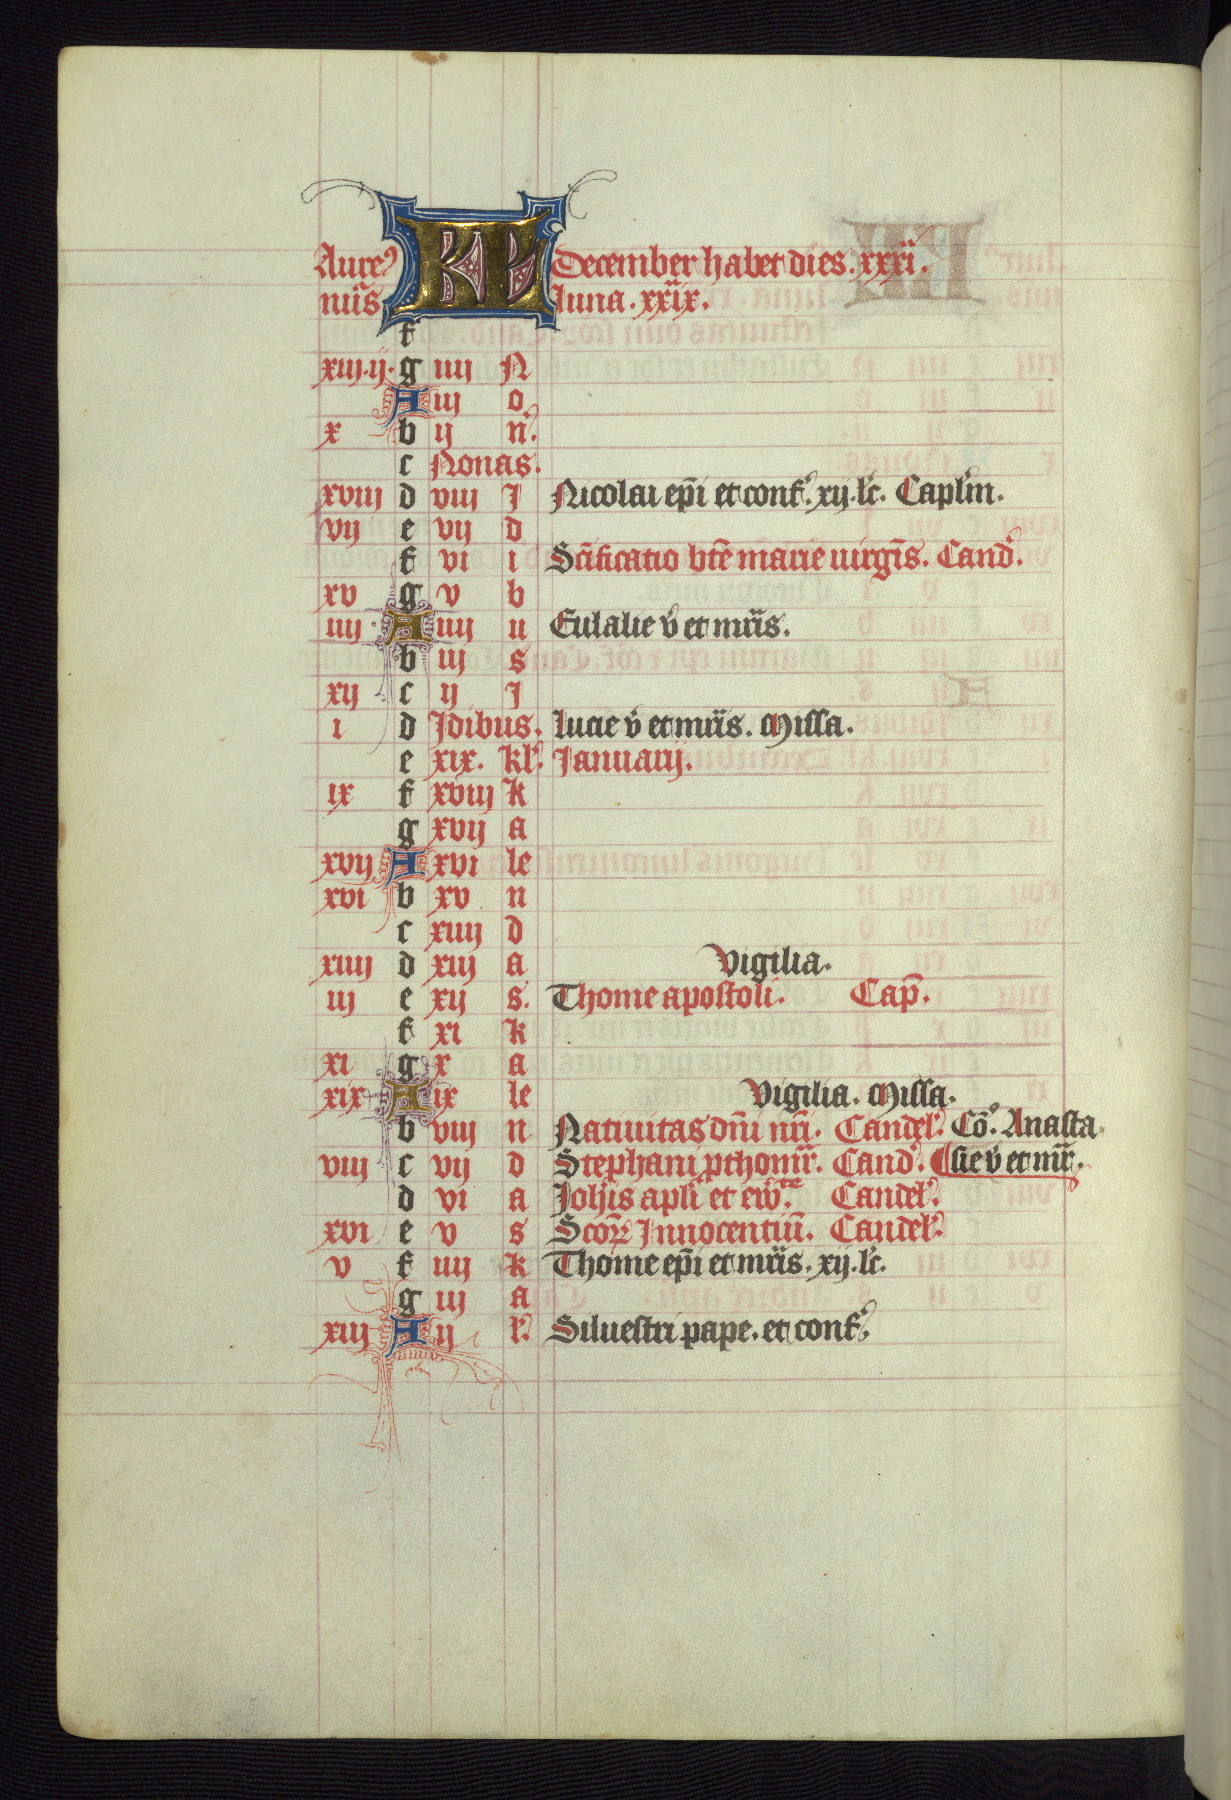 Aure᾽ KL December habet dies. xxxi.
nūs luna. xxix.
f
xiii. ij. g iiij N
A iij o
x b ij n᾽.
c Nonas.
xviij d viij J Nicolai ep̄i et conf᾽. xij. lc̄. Caplm̄.
vij e vij d
f vi i Scīficatio bt̄e marie uirgīs. Cand᾽.
xv g v b
iiij A iiij u Eulalie v̄ et mr̄is.
b iij s
xij c ij J
i d Jdibus. Lucie v̄ et mr̄is. Missa.
e xix. kl᾽. Januarij.
ix f xviij k
g xvij a
xvij A xvi le
xvi b xv n
c xiiij d
xiiij d xiij a Vigilia.
iij e xij s. Thome apostoli. Cap̄.
f xi k
xi g x a
xix A ix le Vigilia. Missa.
b viij n Natiuitas dn̄i nr̄i. Candel᾽. Cō. Anasta
viij c vij d Stephani pthomr̄. Cand᾽. sie v̄ et mr̄.
d vi a Joh̄is apli᾽ et ew̄te. Candel᾽.
xvi e v s Scoꝝ Innocentiū. Candel᾽.
v f iiij k Thome ep̄i et mr̄is. xij. lc̄.
g iij a
xiij A ij l᾽. Siluestri pape. et conf᾽.